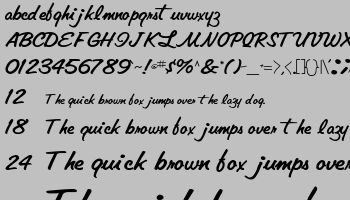 abcdefghijklmnopqrst uvwxyz
ABCDEFGHIJKLMNOPQRSTUVWX
0123456789~!@#$%^&*()-_+=>,<[]{}|\':
12 The quick brown fox jumps over the lazy dog.
18 The quick brown fox jumps over the lazy
24 The quick brown fox jumps over
The quick brown fox